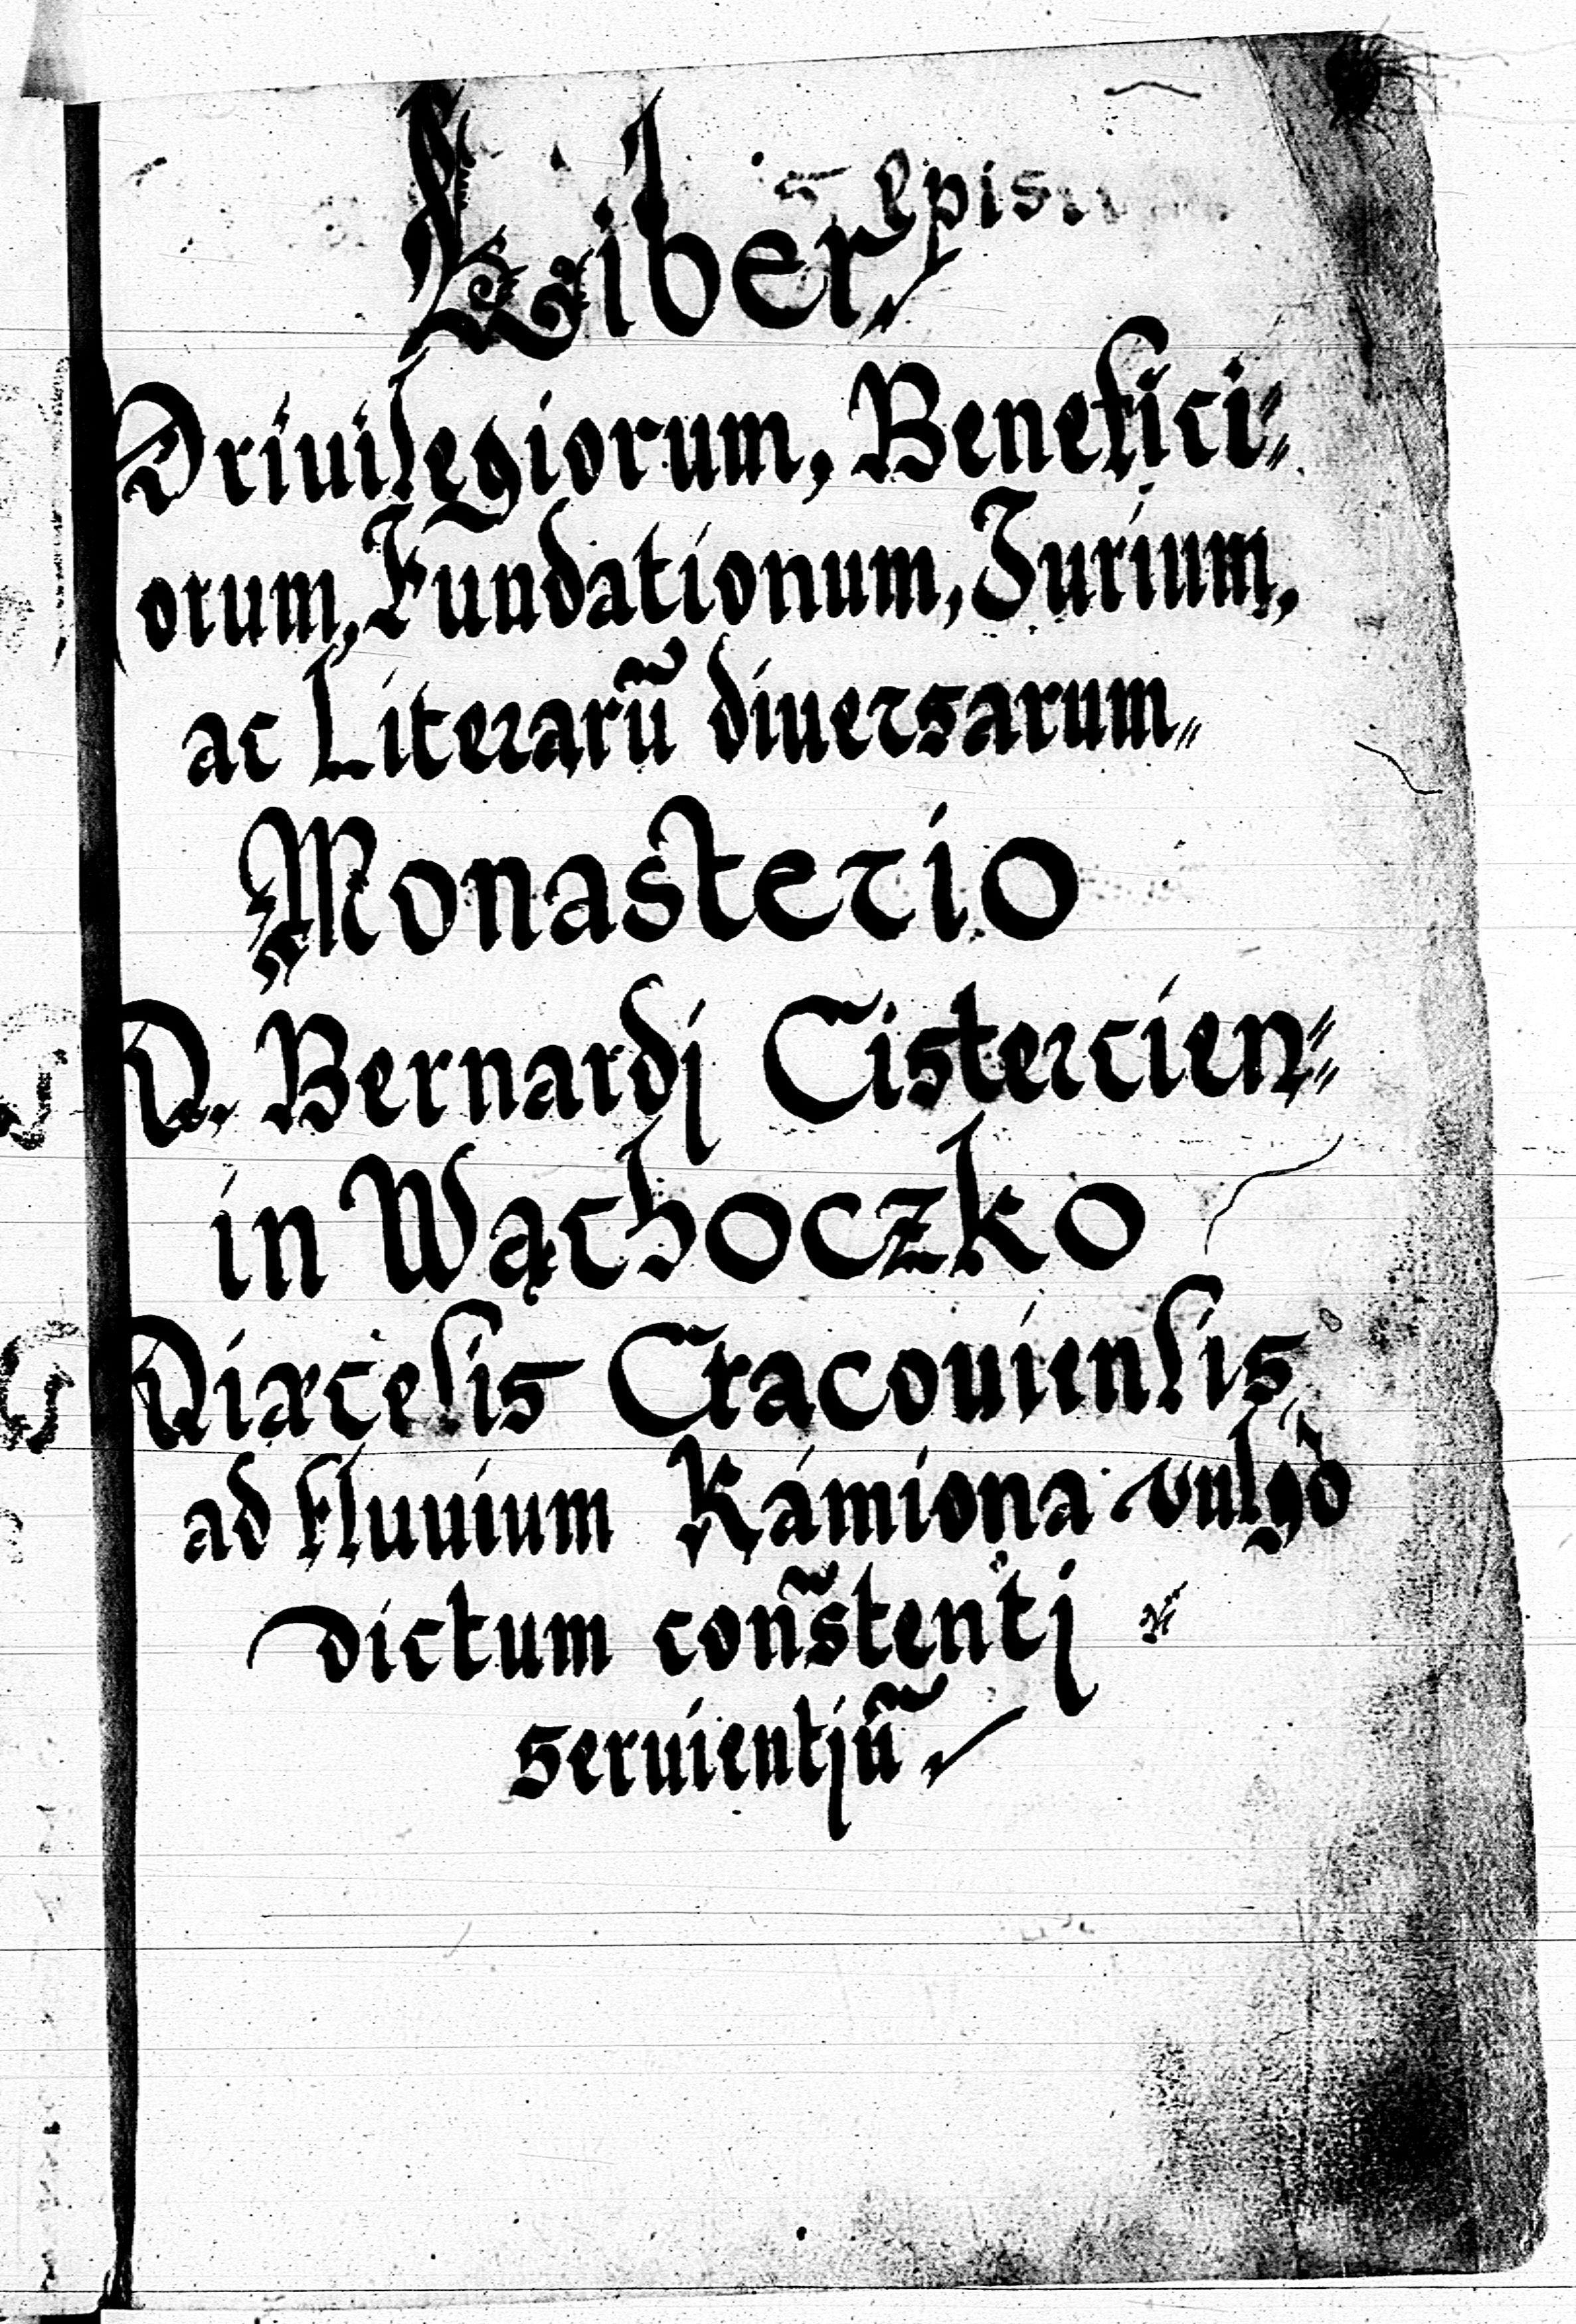 Liber
Priuilegiorum, Benefici⸗
orum, Fundationum, Jurium,
ac Literarū diuersarum
Monasterio
D. Bernardj Cistercien⸗
in Wąchoczko
Diæcesis Cracouiensis,
ad fluuium Kámiona vulgò
dictum con̄stentj
seruientjū